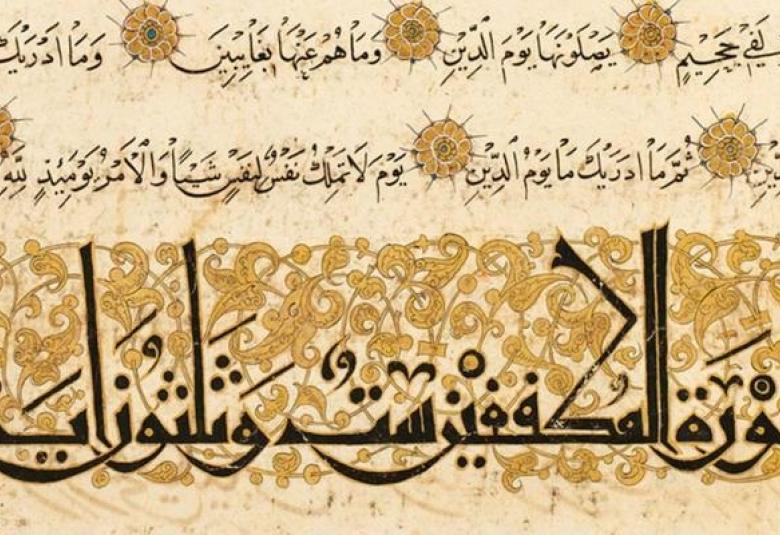 لَفِي جَحِيمٍ يَصْلَوْنَهَا يَوْمَ الدِّينِ وَمَا هُمْ عَنْهَا بِغَايِبِينَ وَمَا ادْرَيكَ
ثُمَّ مَا ادْرَيكَ مَا يَوْمُ الدِّينِ يَوْمَ لَا تَمْلِكُ نَفْسٌ لِنَفْسٍ شَيْـًٔا وَالْاَمْرُ يَوْمَئِذٍ لِلّٰهِ
سورة المطففين ست وثلثون